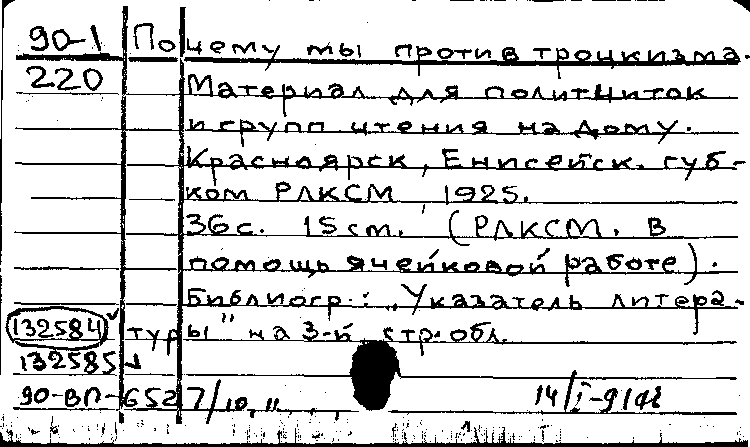 90-1 Почему мы против троцкизма.
220 Материал для политчиток
и групп чтения на дому.
Красноярск, Енисейск. губ-
ком РЛКСМ, 1925.
36 с. 15 см. (РЛКСМ. В
помощь ячейковой работе).
Библиогр.: "Указатель литера-
132584 туры" на 3-й стр. обл.
132585
90-ВП-652 14/I-91